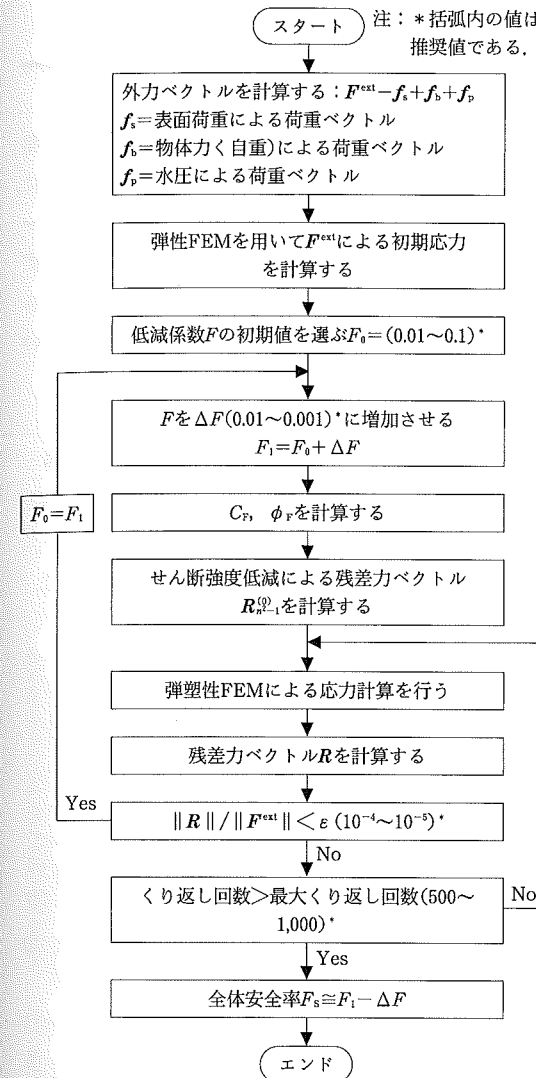 スタート
注：＊括弧内の値は
推奨値である．
外力ベクトルを計算する：F^ext−f_s+f_b+f_p
f_s＝表面荷重による荷重ベクトル
f_b＝物体力く自重)による荷重ベクトル
f_p＝水圧による荷重ベクトル
弾性FEMを用いてF^extによる初期応力
を計算する
低減係数Fの初期値を選ぶF_0＝(0.01〜0.1)＊
FをΔF(0.01〜0.001)＊に増加させる
F_1＝F_0＋ΔF
F_0＝F_1
C_F, φ_Fを計算する
せん断強度低減による残差力ベクトル
を計算する
弾塑性FEMによる応力計算を行う
残差力ベクトルRを計算する
‖R‖/‖F^ext‖＜ε(10^−4〜10^−5)＊
Yes
No
くり返し回数＞最大くり返し回数(500〜
1,000)＊
No
Yes
全体安全率F_S≅F_1−ΔF
エンド